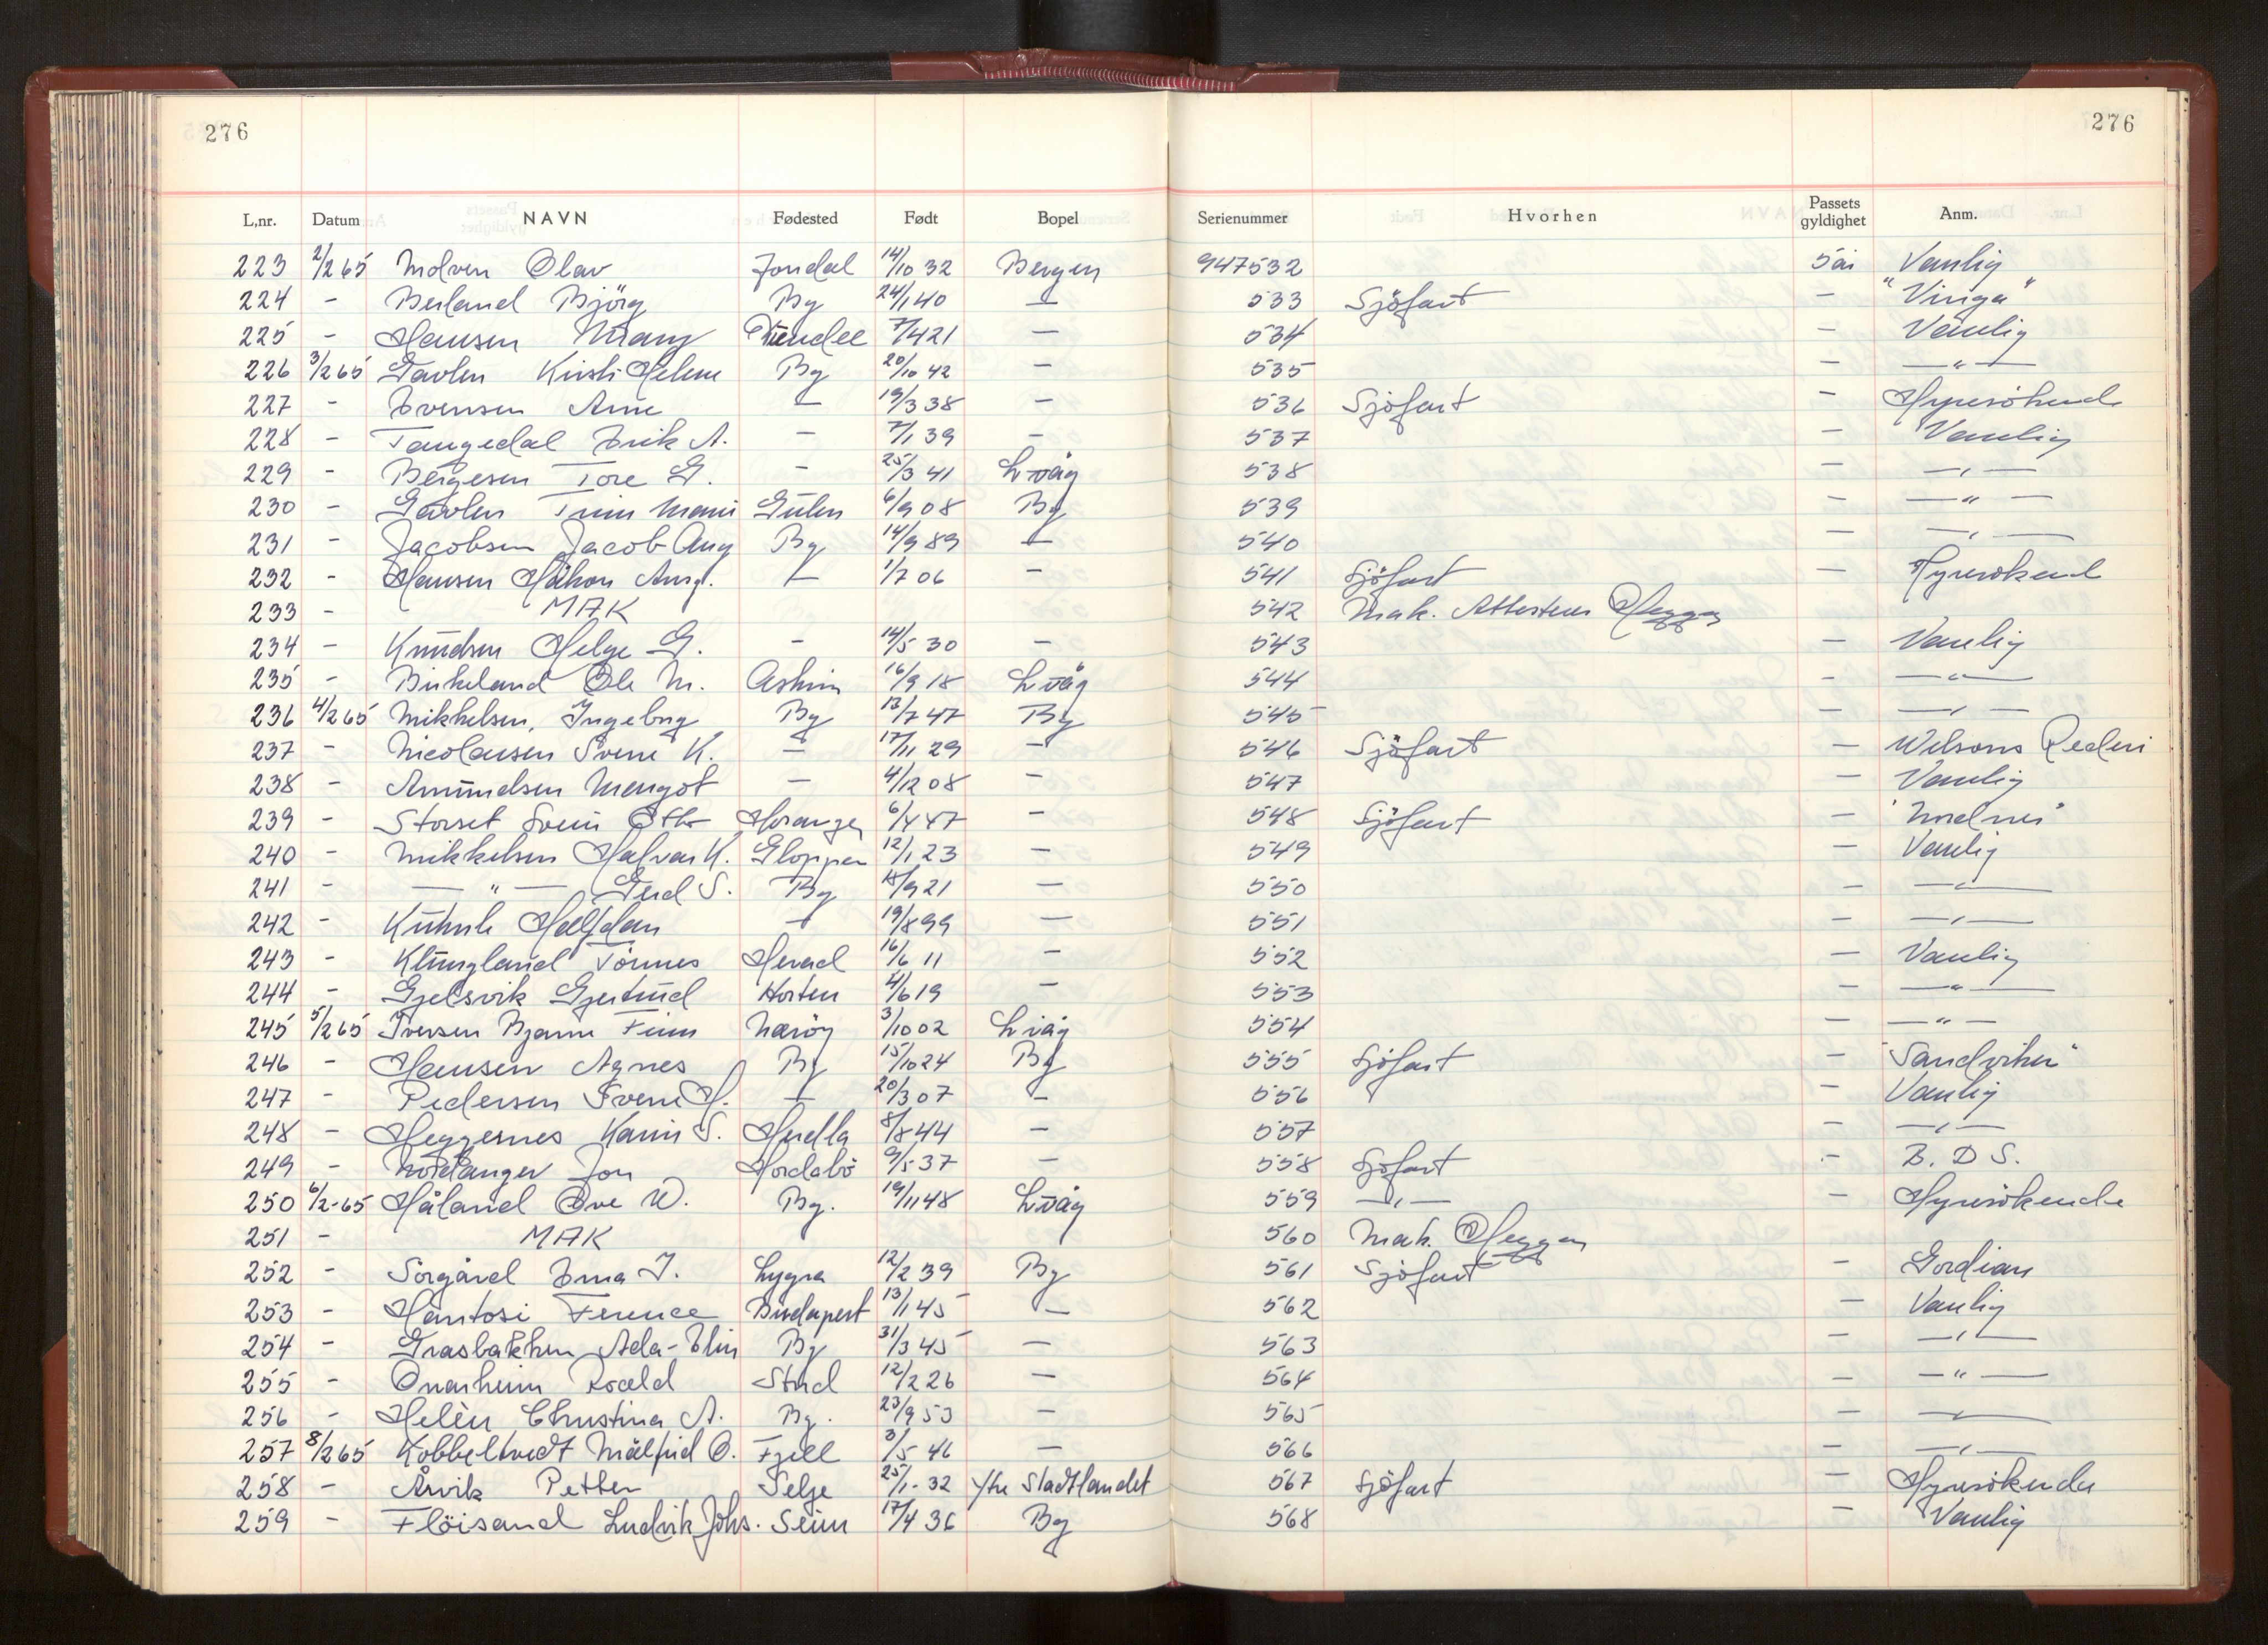 276 276
L,nr. Datum NAVN Fødested Født Bopel Serienummer Hvorhen Passets gyldighet Anm.
223 2/2 65 Molven Olav Jondal 14/10 32 Bergen 947532 5 år Vanlig
224 - Berland Bjørg By 24/1 40 — 533 Sjöfart — "Vinga"
225 - Hansen Mary 7/4 21 — 534 — Vanlig
226 3/2 65 Gavlen Kirsti Helene By 20/10 42 — 535 — —"—
227 - Svensen Arne — 19/3 38 — 536 Sjöfart — Hyresökende
228 - Tangedal Erik A. — 7/1 39 — 537 — Vanlig
229 - Bergesen Tore G. — 25/3 41 Lvåg 538 — —"—
230 - Gavlen Marie Gulen 6/9 08 By 539 — —"—
231 - Jacobsen Jacob Aug By 14/9 89 — 540 — —"—
232 - Hansen Håkon Aug. — 1/7 06 — 541 Sjöfart — Hyresökend
233 - MAK 542 Mak. Attesteres Hegge
234 - Knudsen Helge G. — 14/5 30 — 543 — Vanlig
235 - Birkeland Ole M. Askim 16/9 18 Lvåg 544 — —"—
236 4/2 65 Mikkelsen, Ingebrg By 13/7 47 By 545 — —"—
237 - Nicolaisen Sverre K. — 17/11 29 — 546 Sjöfart — Wilsons Rederi
238 - Amundsen Margot — 4/12 08 — 547 — Vanlig
239 - Storset Svein Otto 6/4 47 — 548 Sjöfart — "Nordnes"
240 - Mikkelsen Halvar K. Gloppen 12/1 23 — 549 — Vanlig
241 - —"— Gerd S. By 15/9 21 — 550 — —"—
242 - Halfdan — 19/8 99 — 551 — —"—
243 - Klungland Tönnes Herad 16/6 11 — 552 — Vanlig
244 - Gjelsvik Gjertrud Horten 4/6 19 — 553 — —"—
245 5/2 65 Iversen Bjarne Finn Nærøy 3/10 02 Lvåg 554 — —"—
246 - Hansen Agnes By 15/10 24 By 555 Sjöfart — "Sandviken"
247 - Pedersen Sverre H. — 20/3 07 — 556 — Vanlig
248 - Heggernes Karin S. Herdla 8/8 44 — 557 — —"—
249 - Nordanger Jon Hordabö 9/5 37 — 558 Sjöfart — B. D S.
250 6/2-65 Håland Ove W. By. 19/11 48 Lvåg 559 —"— — Hyresökende
251 - MAK 560 Mak. Hegge
252 - Sörgård Erna J. Lygra 12/2 39 By 561 Sjöfart — Gordian
253 - Hantosi Ferenc Budapest 13/1 45 — 562 — Vanlig
254 - Grasbakken Ada-Elin By 31/3 45 — 563 — —"—
255 - Onarheim Roald Stord 12/2 26 — 564 — —"—
256 - Helèn Christina A. By. 23/9 53 — 565 — —"—
257 8/2 65 Kobbeltvedt Målfrid O. Fjell 3/5 46 — 566 — —"—
258 - Årvik Petter Selje 25/1-32 Ytre Stadtlandet 567 Sjöfart — Hyresökende
259 - Flöisand Ludvik Johs. Seim 17/4 36 By 568 — Vanlig